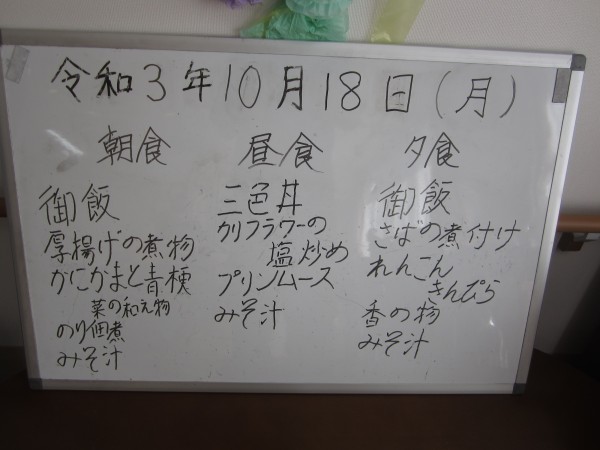 令和3年10月18日(月)
朝食
御飯
厚揚げの煮物
かにかまと青梗
菜の和え物
のり佃煮
みそ汁
昼食
三色丼
カリフラワーの
塩炒め
プリンムース
みそ汁
夕食
御飯
さばの煮付け
れんこん
きんぴら
香の物
みそ汁